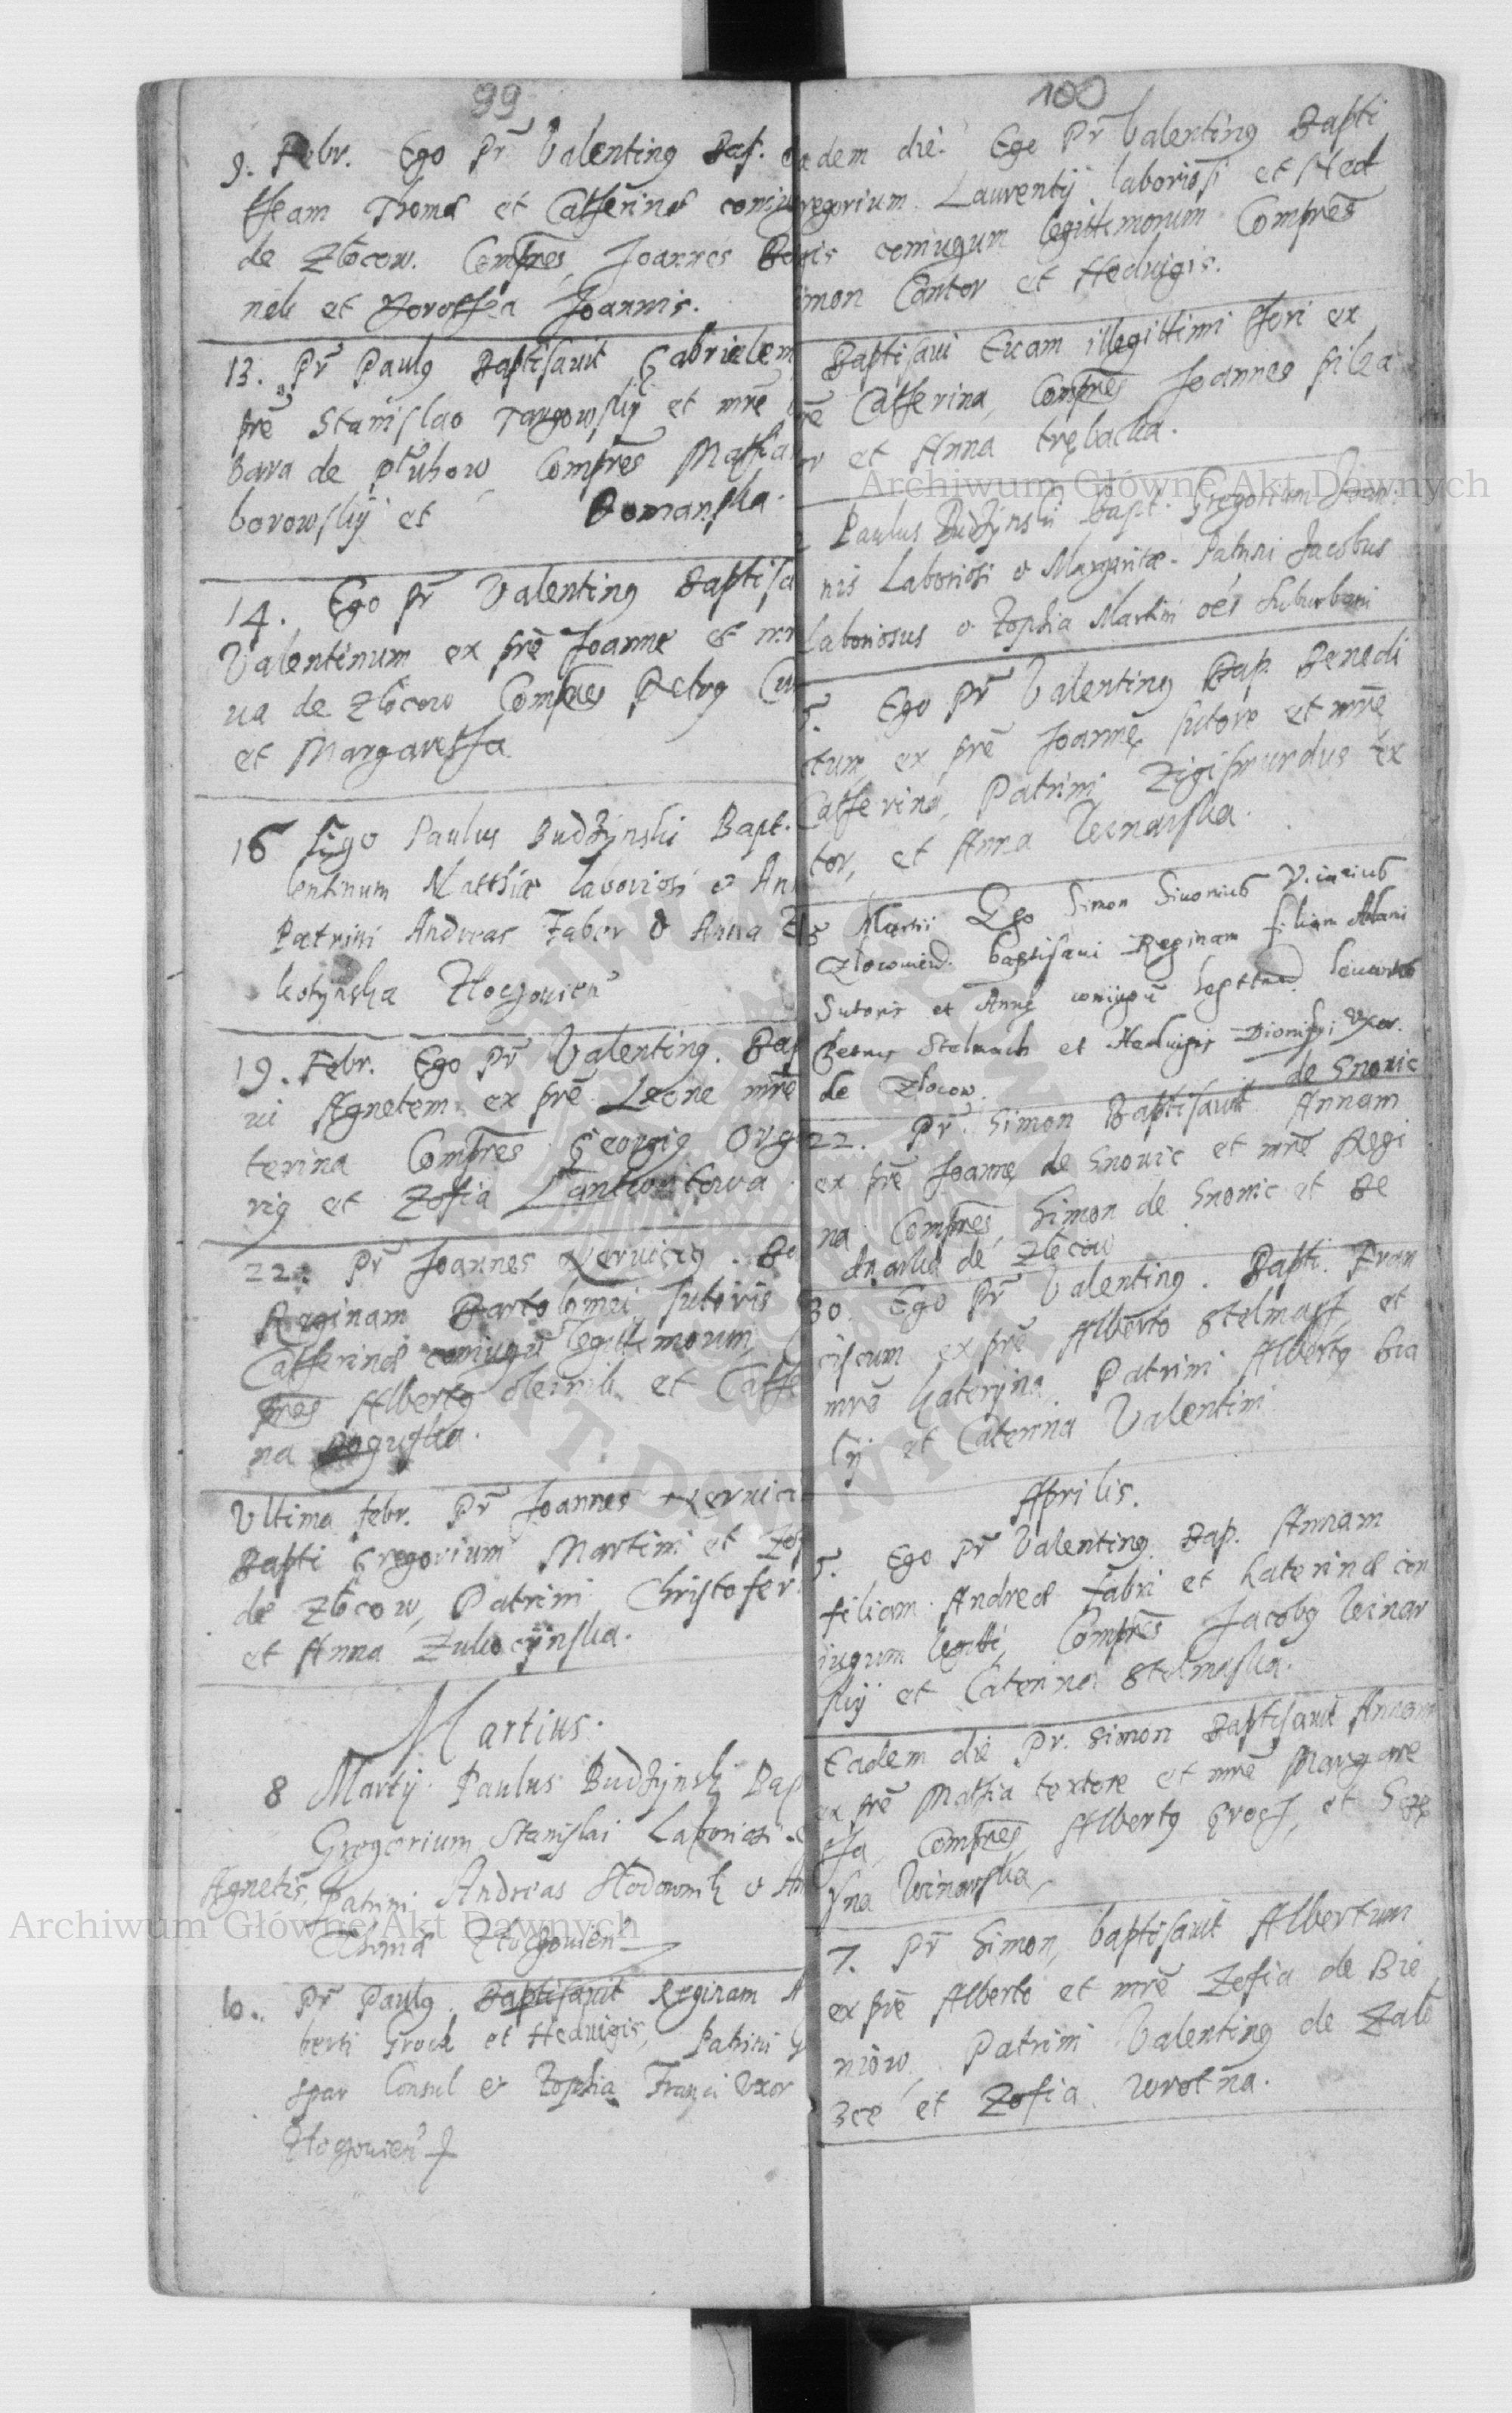 99
9. Febr. Ego Pr̄ Valentinꝯ Bap.
ttheam Thomæ et Catherinæ coniu
de Złocow. Compr̄es Joannes
nek et Dorothea Joannis.
13. Pr̄ Paulꝯ Baptisauit Gabrielem
pr̄e Stanislao Targowskij et mr̄e
bara de Płuhow Compr̄es Mathia
borowskij et Domanska.
14. Ego Pr̄ Valentinꝯ Baptisa
Valentinum ex pr̄e Joanne et mr
ua de Złocow Compr̄es Petrꝯ
et Margaretha
16 Ego Paulus Budzynski Bapt.
lentinum Matthiæ Laboriosi & An
Patrini Andreas Faber & Anna
kotynska Zloczouien
19. Febr. Ego Pr̄ Valentinꝯ. Bap
ui Agnetem ex pr̄e Leone mr̄e
terina Compr̄es Georgiꝯ Orga
riꝯ et Zofia Lantwoitowa
22. Pr̄ Joannes Neruiciꝯ. Ba
Reginam Bartolomæi sutoris
Catherinæ coniugū legittimorum,
pr̄es Albertꝯ oleinik et Cathe
na Boguska.
Vltima febr. Pr̄ Joannes Neruici
Bapti Gregorium Martini et Zop
de Złocow, Patrini Christofer
et Anna Zulicijnska.
Martius.
8 Martij Paulus Budzynski Bap
Gregorium Stanislai Laboriosi &
Agnetis, Patrini Andreas Hodownik & An
Thomæ Zloczouien
10. Pr̄ Paulꝯ Baptisauit Reginam A
berti Groch et Heduigis, Patrini
spar Consul & Zophia Uxor
Zloczouien
100
eadem die. Ego Pr̄ Valentinꝯ Bapti
regorium Laurentij laboriosi et Hed
uigis coniugum legittimorum Compr̄es
imon Cantor et Heduigis.
Baptisaui Euam illegittimi thori ex
r̄e Catherina, Compr̄es Joannes
or et Anna trębaczka.
Paulus Budzynski Bapt. Gregorium Joan
nis Laboriosi & Margaritæ. Patrini Jacobus
Laboriosus & Zophia Martini oēs suburbani
5. Ego Pr̄ Valentinꝯ Bap. Benedi
ctum, ex pr̄e Joanne sutore et mr̄e
Catherina, Patrini Zigismundus tex
tor, et Anna Winarska.
Martii Ego Simon Vicarius
Zlocouien. baptisaui Reginam filiam Adami
Sutoris et Annæ coniugū
Petrus Stelmach et Heduigis Dionisyi Uxor.
de Zlocow.
de Snouic
22. Pr̄ Simon Baptisauit Annam
ex pr̄e Joanne de Snouic et mr̄e Regi
na Compr̄es, Simon de Snouic et Be
dnarka de Złocow
30. Ego Pr̄ Valentinꝯ. Bapti. Fran
ciscum ex pr̄e Alberto Stelmach, et
mr̄e Katerijna Patrini Albertꝯ Bia
łij et Caterina Valentini
Aprilis.
5. Ego Pr̄ Valentinꝯ. Bap. Annam
filiam Andreæ Fabri et Katerinæ con
iugum legitti, Compr̄es Jacobꝯ Winar
skij et Caterina Stelmaska.
Eadem die Pr. Simon Baptisauit Annam
ex pr̄e Mathia textore et mr̄e Margare
tha, Compr̄es, Albertꝯ Groch, et
Winarska,
7. Pr̄ Simon, baptisauit Albertum
ex pr̄e Alberto et mr̄e Zofia de Bie
niow, Patrini Valentinꝯ de Zalo
zce et Zofia wrotna.
Archiwum Główne Akt Dawnych
Archiwum Główne Akt Dawnych